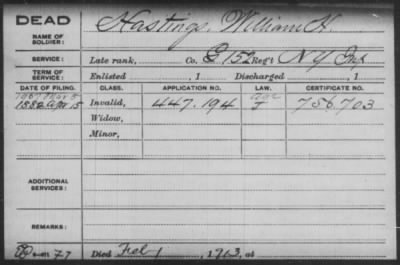 DEAD Hastings, William H.
NAME OF
SOLDIER:
SERVICE: Late rank, Co. E 152 Reg't N Y Inf
TERM OF
SERVICE: Enlisted , 1 Discharged , 1
DATE OF FILING. CLASS. APPLICATION NO. LAW. CERTIFICATE NO.
1907 Mar 5 age
1882 Apr 15 Invalid, 447.194 J 756703
Widow,
Minor,
ADDITIONAL
SERVICES:
REMARKS:
77 Died Feb 1 , 1913, at